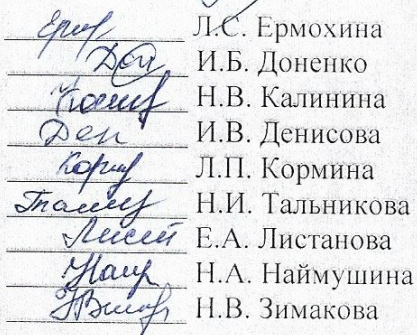 Л.С. Ермохина
Дон И.Б. Доненко
Н.В. Калинина
Ден И.В. Денисова
Корм Л.П. Кормина
Н.И. Тальникова
Лист Е.А. Листанова
Н.А. Наймушина
Н.В. Зимакова